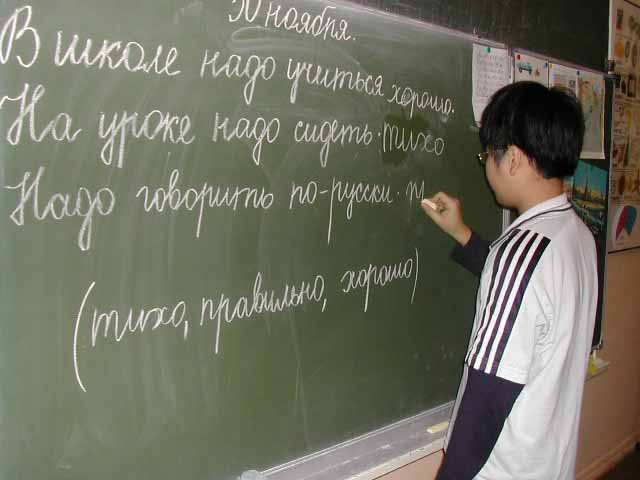 ноября.
В школе надо учиться хорошо.
На уроке надо сидеть тихо
Надо говорить по-русски п
(тихо, правильно, хорошо)